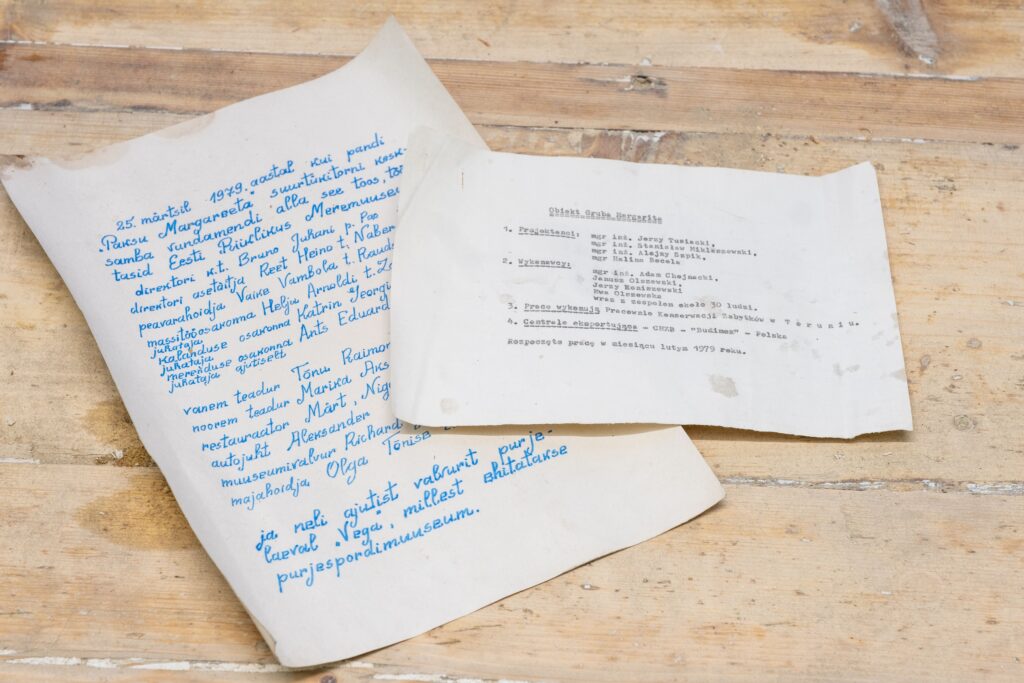 25. märtsil 1979. aastal kui pandi
"Paksu Margareeta" suurtükitorni kesk-
samba vundamendi alla see toos,
tasid Eesti Riiklikus Meremuuse
direktori k.t. Bruno Juhani p. Pao
direktori asetäitja Reet Heino t. Naber
peavarahoidja Vaike Vambola t. Raud
massitööosakonna Helju Arnoldi t.
juhataja
kalanduse osakonna Katrin Georgi
juhataja
merenduse osakonna Ants Eduard
juhataja ajutiselt
vanem teadur Tõnu Raimo
noorem teadur Marika Aks
restauraator Märt, Nigo
autojuht Aleksander
muuseumivalvur Richard
majahoidja Olga Tõnise
ja neli ajutist valvurit purje-
laeval "Vega", millest ehitatakse
purjespordimuuseum.
Obiekt Gruba Margarita
1. Projektanci: mgr inż. Jerzy Tusiacki,
mgr inż. Stanisław Mikłaszewski,
mgr inż. Alojzy Szpik,
mgr Halina Socała
2. Wykonawcy: mgr inż. Adam Chojnacki,
Janusz Olszewski,
Jerzy Koniszewski
Ewa Olszewska
wraz z zespołem około 30 ludzi.
3. Prace wykonują Pracownie Konserwacji Zabytków w Toruniu.
4. Centrala eksportująca - CHZB - "Budimex" - Polska
Rozpoczęto pracę w miesiącu lutym 1979 roku.